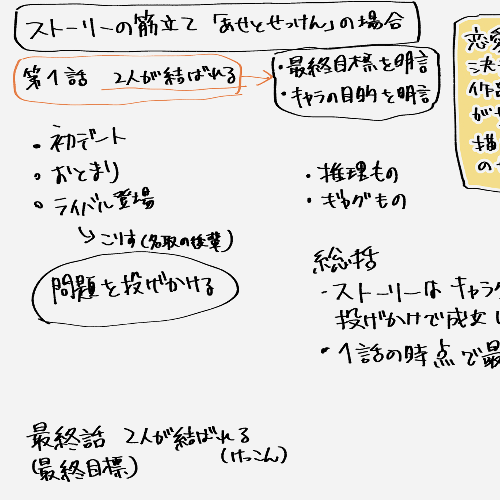 ストーリーの筋立て「あせとせっけん」の場合
第1話 2人が結ばれる
・最終目標を明言
・キャラの目的を明言
・初デート
・おとまり
・ライバル登場
→こりす(名取の後輩)
問題を投げかける
・推理もの
・ギャグもの
総括
・ストーリーはキャラ
投げかけで成立し
・1話の時点で最
最終話 2人が結ばれる
(最終目標) (けっこん)
恋愛
決
作品
が
描
の